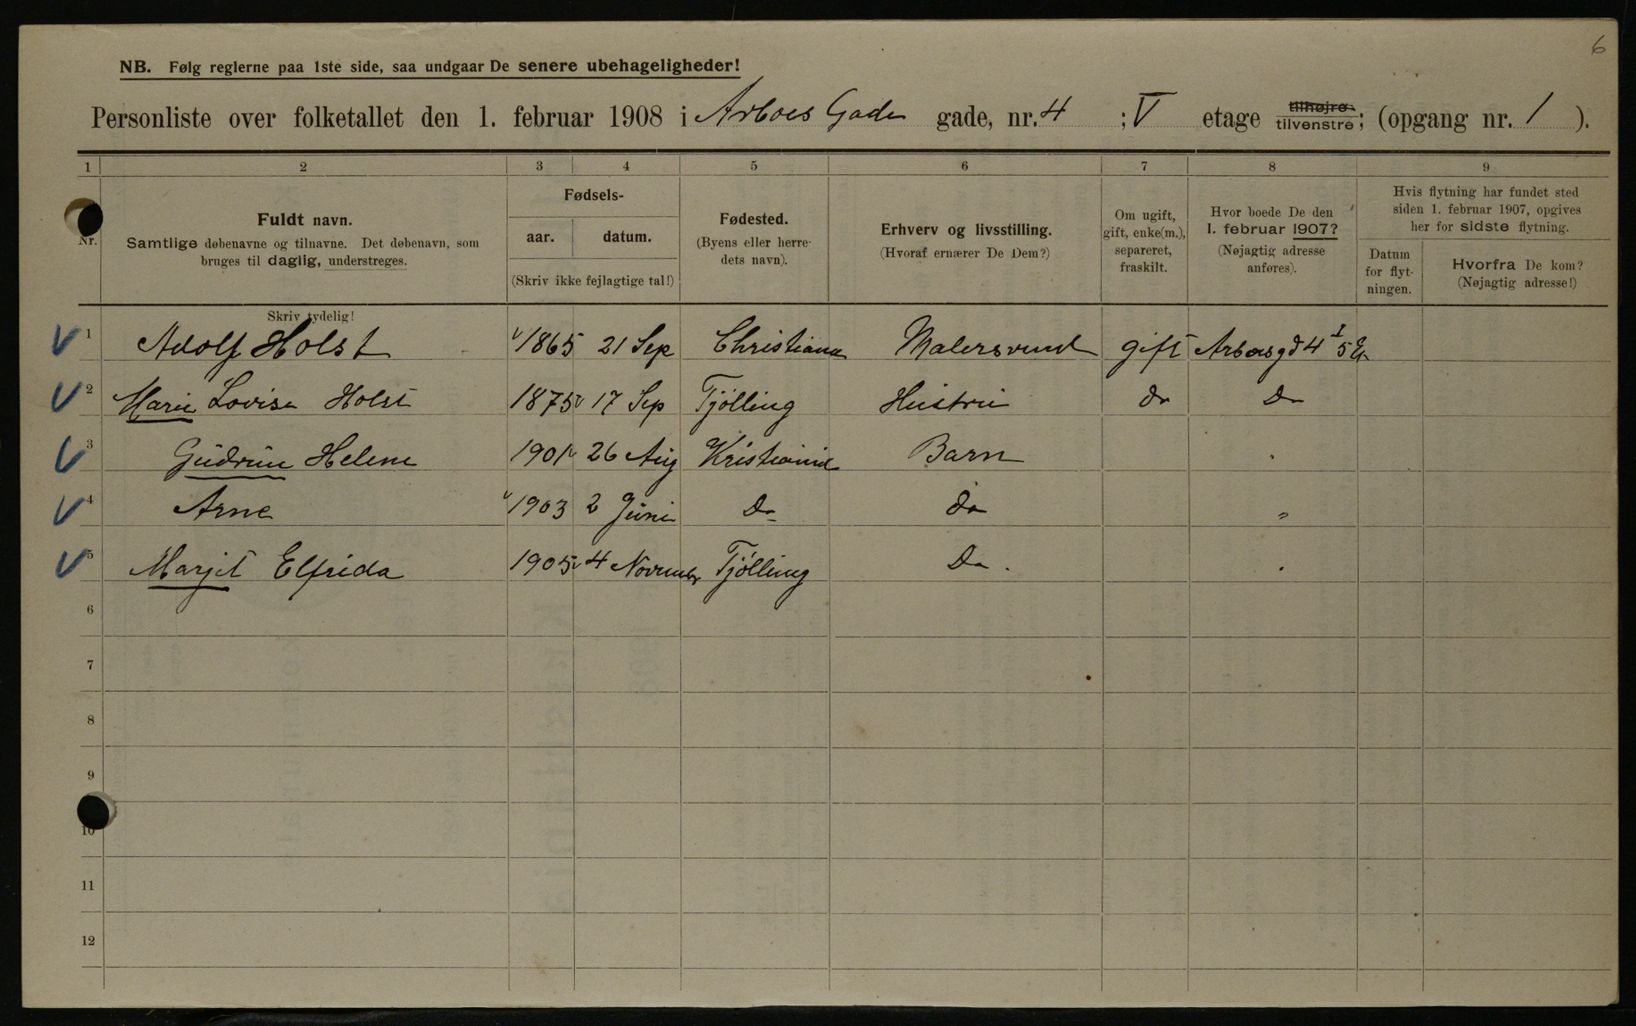 6
NB. Følg reglerne paa 1ste side, saa undgaar De senere ubehageligheder!
Personliste over folketallet den 1. februar 1908 i Arboes Gade gade, nr. 4 ; V etage tilhøjre tilvenstre; (opgang nr. 1 ).
1 2 3 4 5 6 7 8 9
Nr.
Fuldt navn.
Samtlige døbenavne og tilnavne. Det døbenavn, som
bruges til daglig, understreges.
Skriv tydelig!
Fødsels-
aar. datum.
(Skriv ikke fejlagtige tal!)
Fødested.
(Byens eller herre-
dets navn).
Erhverv og livsstilling.
(Hvoraf ernærer De Dem?)
Om ugift,
gift, enke(m.),
separeret,
fraskilt.
Hvor boede De den
1. februar 1907?
(Nøjagtig adresse
anføres).
Hvis flytning har fundet sted
siden 1. februar 1907, opgives
her for sidste flytning.
Datum
for flyt-
ningen.
Hvorfra De kom?
(Nøjagtig adresse!)
V 1 Adolf Holst 1865 21 Sep Christiania Malersvend gift Arboesgd 4 I 5 Eg
V 2 Marie Lovise Holst 1875 17 Sep Tjölling Hustru do Do
V 3 Gudrun Helene 1901 26 Aug Kristiania Barn "
V 4 Arne 1903 2 Juni Do do "
V 5 Marjit Elfrida 1905 4 November Tjölling Do. "
6
7
8
9
10
11
12